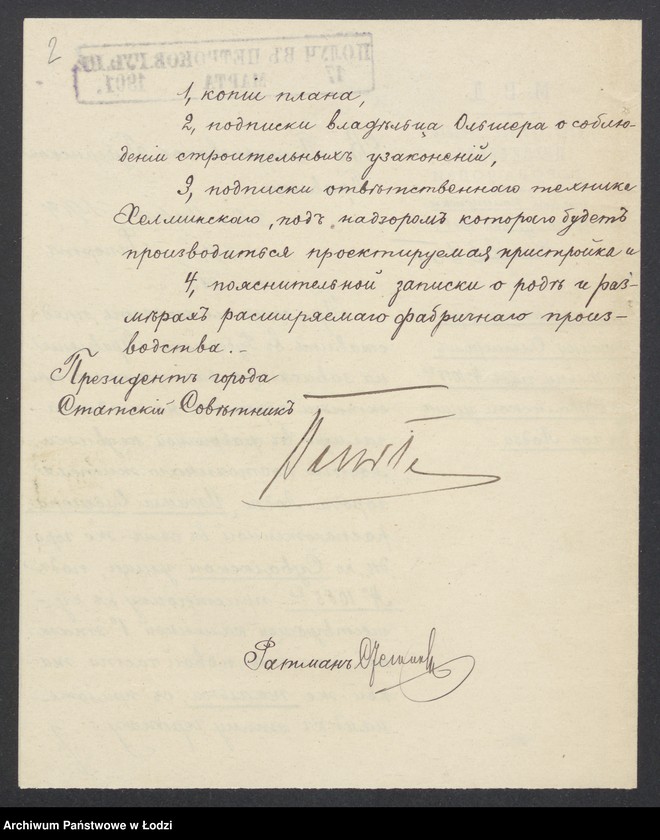 2
1, копіи плана,
2, подписки владѣльца Ольшера о соблю-
деніи строительныхъ узаконеній,
3, подписки отвѣтственнаго техника
Хелминскаго, подъ надзоромъ котораго будетъ
производиться проектируемая пристройка и
4, пояснительной записки о родѣ и раз-
мѣрахъ расширяемаго фабричнаго произ-
водства.-
Президентъ города
Статскій Совѣтникъ
Ратманъ
Archiwum Państwowe w Łodzi